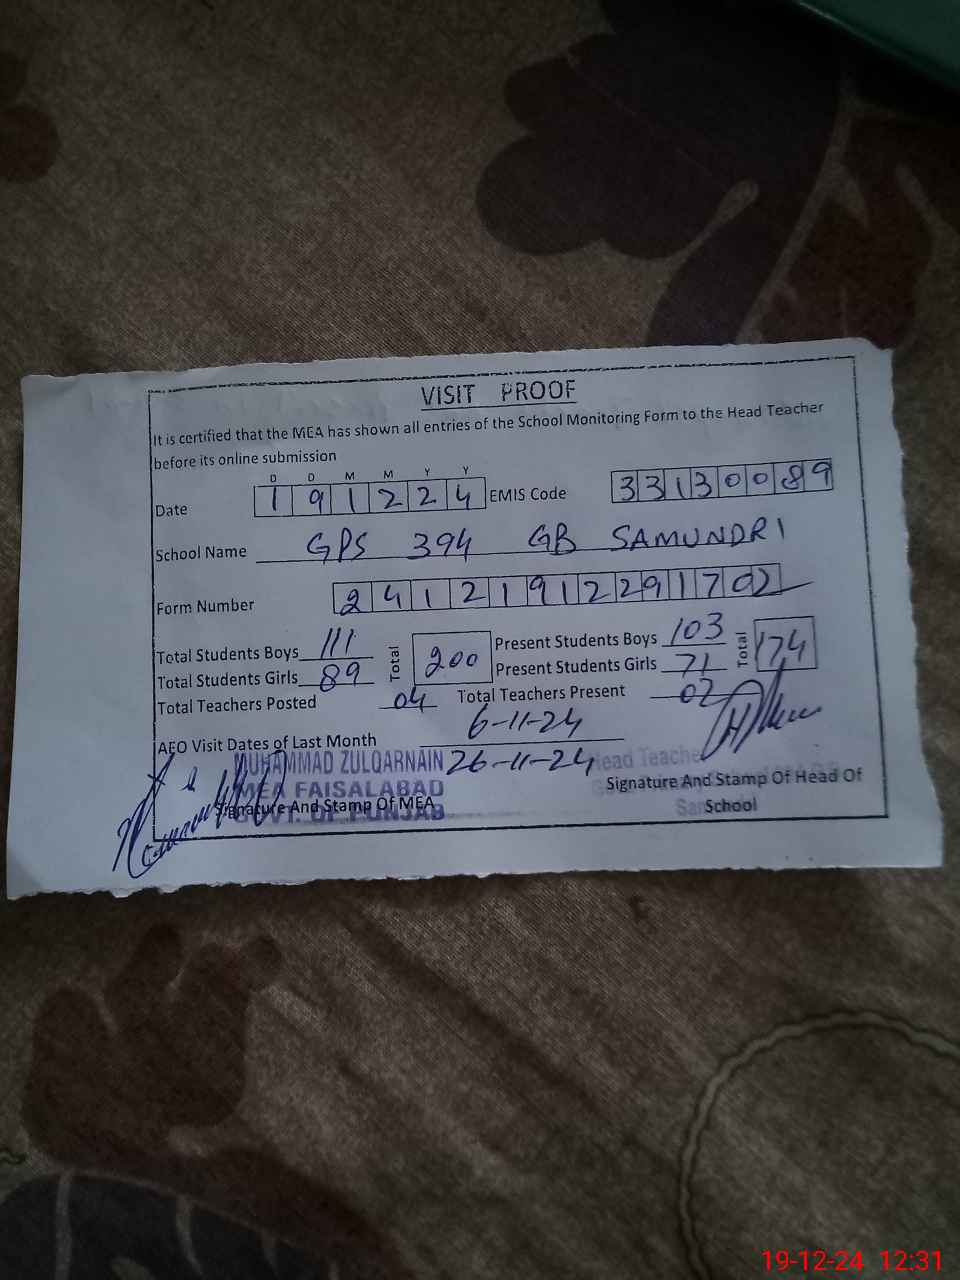 VISIT PROOF
It is certified that the MEA has shown all entries of the School Monitoring Form to the Head Teacher
before its online submission
D D M M Y Y
Date 1 9 1 2 2 4 EMIS Code 3 3 1 3 0 0 8 9
School Name GPS 394 GB SAMUNDRI
Form Number 2 4 1 2 1 9 1 2 2 9 1 7 0 2
Total Students Boys 111 Total 200 Present Students Boys 103 Total 174
Total Students Girls 89 Present Students Girls 71
Total Teachers Posted 04 Total Teachers Present 02
AEO Visit Dates of Last Month 6-11-24
26-11-24
MUHAMMAD ZULQARNAIN
MEA FAISALABAD
GOVT. OF PUNJAB
Signature And Stamp Of MEA
Head Teacher
Signature And Stamp Of Head Of
School
19-12-24 12:31